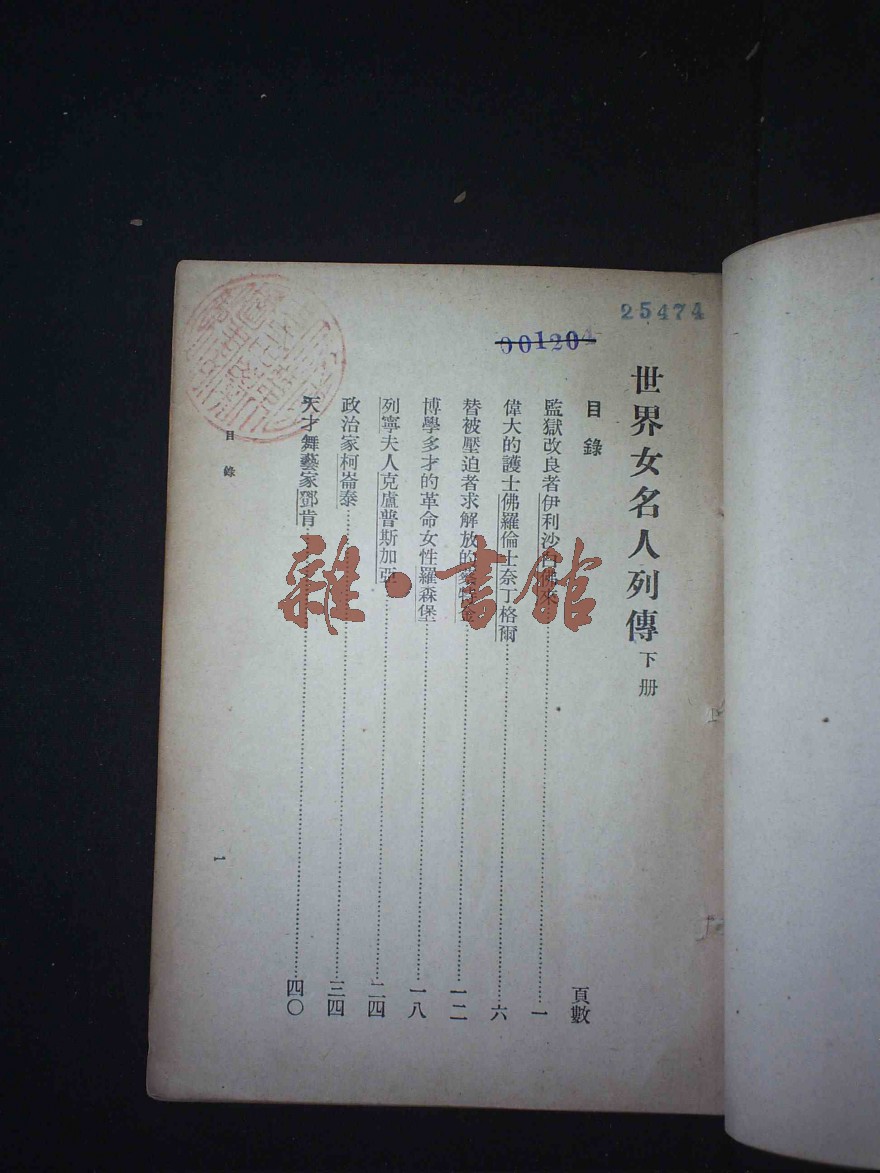 25474
001204
世界女名人列傳 下册
目錄
頁數
監獄改良者伊利沙白佛來 一
偉大的護士佛羅倫士奈丁格爾 六
替被壓迫者求解放的蔡特金 一二
博學多才的革命女性羅森堡 一八
列寧夫人克盧普斯加亞 二四
政治家柯崙泰 三四
天才舞藝家鄧肯 四〇
目錄
一
雜·書館